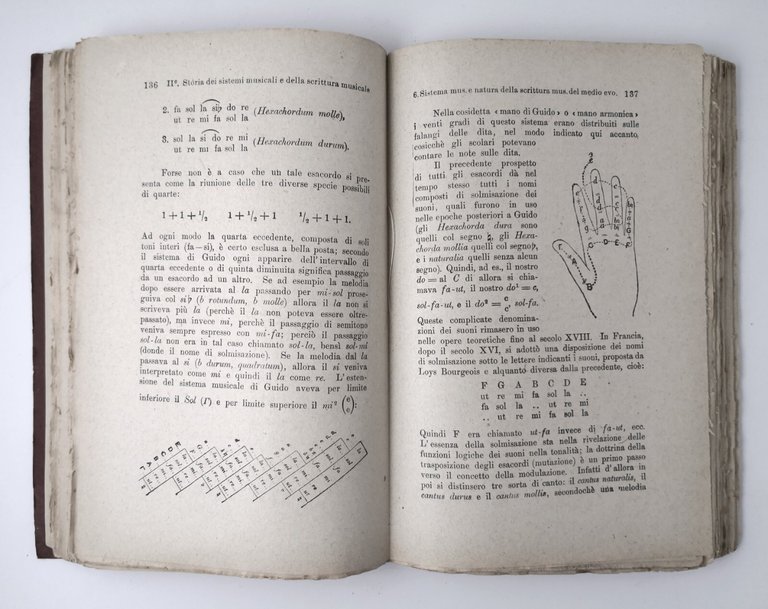 136 IIª. Storia dei sistemi musicali e della scrittura musicale
2. fa sol la si♭ do re
ut re mi fa sol la
(Hexachordum molle),
3. sol la si do re mi
ut re mi fa sol la
(Hexachordum durum).
Forse non è a caso che un tale esacordo si pre-
senta come la riunione delle tre diverse specie possibili
di quarte:
1 + 1 + ½ 1 + ½ + 1 ½ + 1 + 1.
Ad ogni modo la quarta eccedente, composta di soli
toni interi (fa–si), è certo esclusa a bella posta; secondo
il sistema di Guido ogni apparire dell'intervallo di
quarta eccedente o di quinta diminuita significa passaggio
da un esacordo ad un altro. Se ad esempio la melodia
dopo essere arrivata al la passando per mi-sol prose-
guiva col si♭ (b rotundum, b molle) allora il la non si
scriveva più la (perchè il la non poteva essere oltre-
passato), ma invece mi, perchè il passaggio di semitono
veniva sempre espresso con mi-fa; perciò il passaggio
sol-la non era in tal caso chiamato sol-la, bensì sol-mi
(donde il nome di solmisazione). Se la melodia dal la
passava al si (b durum, quadratum), allora il si veniva
interpretato come mi e quindi il la come re. L'esten-
sione del sistema musicale di Guido aveva per limite
inferiore il Sol (Γ) e per limite superiore il mi² (e e):
6. Sistema mus. e natura della scrittura mus. del medio evo. 137
Nella cosidetta « mano di Guido » o « mano armonica »
i venti gradi di questo sistema erano distribuiti sulle
falangi delle dita, nel modo indicato qui accanto,
cosicchè gli scolari potevano
contare le note sulle dita.
Il precedente prospetto
di tutti gli esacordi dà nel
tempo stesso tutti i nomi
composti di solmisazione dei
suoni, quali furono in uso
nelle epoche posteriori a Guido
(gli Hexachorda dura sono
quelli col segno ♮, gli Hexa-
chorda mollia quelli col segno ♭,
e i naturalia quelli senza alcun
segno). Quindi, ad es., il nostro
do = al C di allora si chia-
mava fa-ut, il nostro do¹ = c,
sol-fa-ut, e il do² = c c sol-fa.
Queste complicate denomina-
zioni dei suoni rimasero in uso
nelle opere teoretiche fino al secolo XVIII. In Francia,
dopo il secolo XVI, si adottò una disposizione dei nomi
di solmisazione sotto le lettere indicanti i suoni, proposta da
Loys Bourgeois e alquanto diversa dalla precedente, cioè:
F G A B C D E
ut re mi fa sol la ..
fa sol la .. ut re mi
.. ut re mi fa sol la
Quindi F era chiamato ut-fa invece di fa-ut, ecc.
L'essenza della solmisazione sta nella rivelazione delle
funzioni logiche dei suoni nella tonalità; la dottrina della
trasposizione degli esacordi (mutazione) è un primo passo
verso il concetto della modulazione. Infatti d'allora in
poi si distinsero tre sorta di canto: il cantus naturalis, il
cantus durus e il cantus mollis, secondochè una melodia